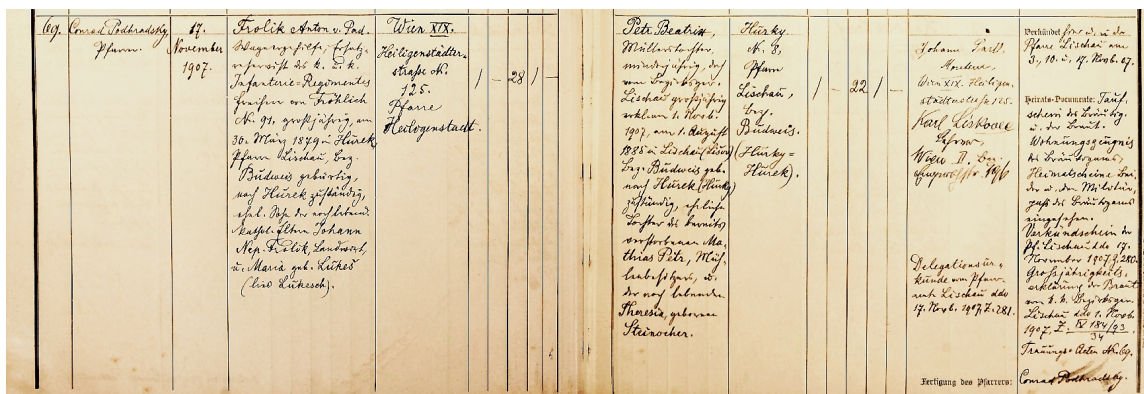 69.
Conrad Podhradsky,
Pfarrer.
17.
November
1907.
Frolik Anton v. Pad.
Wagengehilfe, Ersatz-
reservist des k. u. k.
Infanterie-Regimentes
Freiherr von Fröhlich
N. 91, großjährig, am
30. März 1879 in Hurek,
Pfarre Lischau, Bez.
Budweis gebürtig,
nach Hurek zuständig,
ehel. Sohn der noch lebend.
kathol. Eltern Johann
Nep. Frolik, Landwirt,
u. Maria geb. Lukeš
(bzw. Lukesch).
Wien XIX.
Heiligenstädter-
strasse N.
125.
Pfarre
Heiligenstadt.
/ – 28 / –
Petr Beatrix,
Müllerstochter,
minderjährig, doch
vom Bezirksger.
Lischau großjährig
erklärt 1. Novb.
1907, am 1. August
1885 in Lischau (Lišov)
Bez. Budweis geb.
nach Hurek (Hurky)
zuständig, eheliche
Tochter des bereits
verstorbenen Ma-
thias Petr, Müh-
lenbesitzers, u.
der noch lebenden
Theresia, geborenen
Steinocher.
Hurky
N. 8,
Pfarre
Lischau,
bez.
Budweis.
(Hurky =
Hurek).
/ – 22 / –
Johann
Wien XIX. Heiligen-
städterstrasse 125.
Karl
Lehrer,
Wien II.
196
Delegationsur-
kunde vom Pfarr-
amte Lischau ddo
17. Novb. 1907, Z. 281.
Fertigung des Pfarrers:
Verkündet hier u. in der
Pfarre Lischau am
3., 10. u. 17. Nov. 07.
Heirats-Documente: Tauf-
schein des Bräutig.
u. der Braut.
Wohnungszeugnis
des Bräutigams,
Heimatscheine bei-
der u. der Militär-
paß des Bräutigams
eingesehen.
Verkündschein der
Pf. Lischau ddo 17.
November 1907, Z. 280.
Großjährigkeits-
erklärung der Braut
vom k. k. Bezirksger.
Lischau ddo 1. Novb.
1907 Z. IV 184/93
34
Trauungs-Acten N. 69.
Conrad Podhradsky.